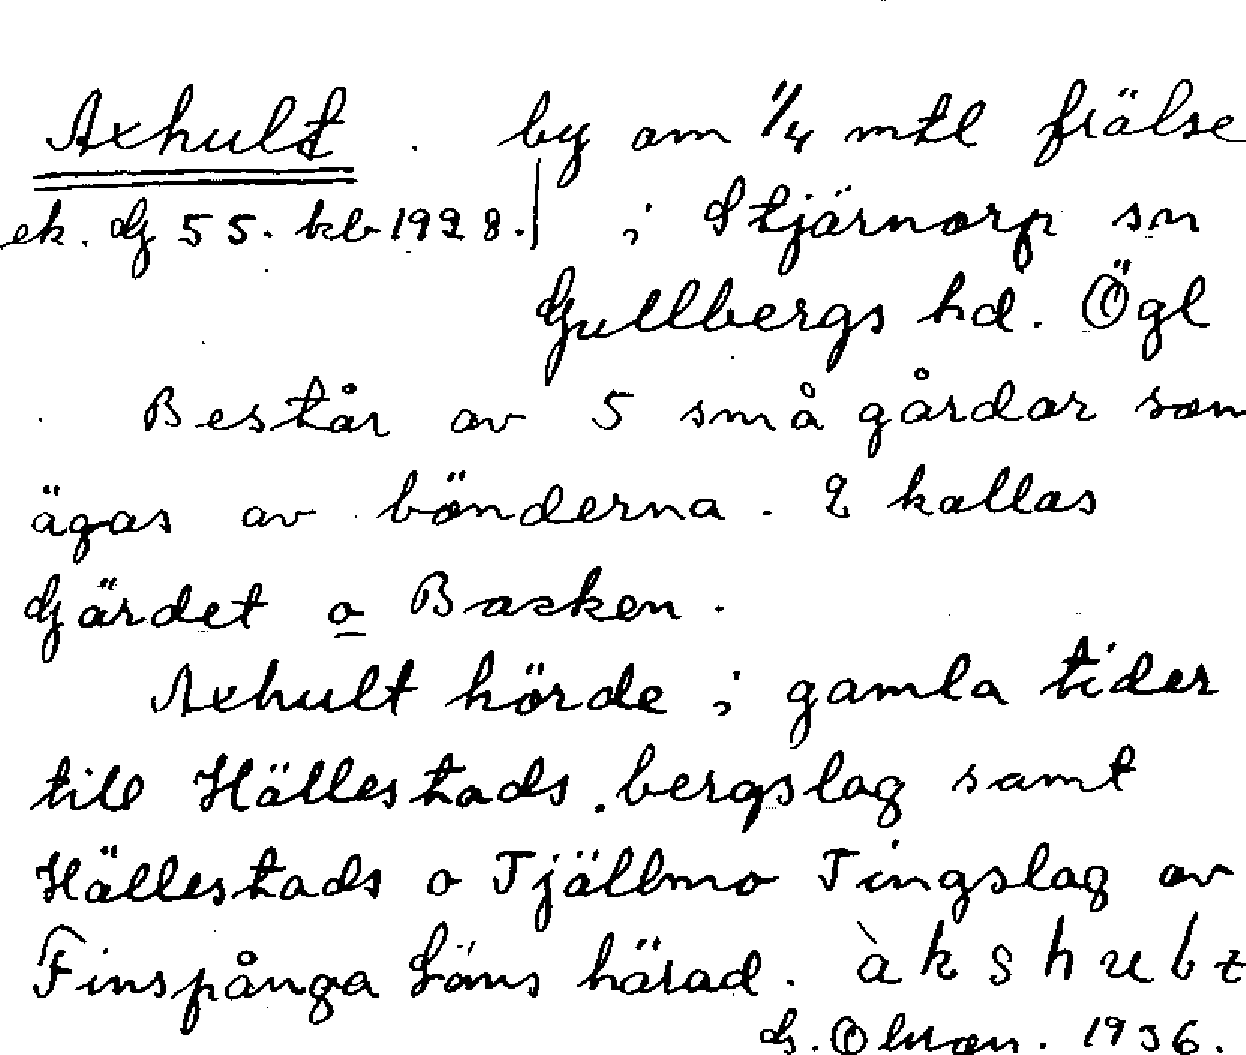 Axhult. by om 1/4 mtl frälse
ek. G 55. kb 1928. i Stjärnorp sn
Gullbergs hd. Ögl
Består av 5 små gårdar som
ägas av bönderna. 2 kallas
Gärdet o Backen.
Axhult hörde i gamla tider
till Hällestads bergslag samt
Hällestads o Tjällmo Tingslag av
Finspånga Läns härad. àkshult
G. 1936.